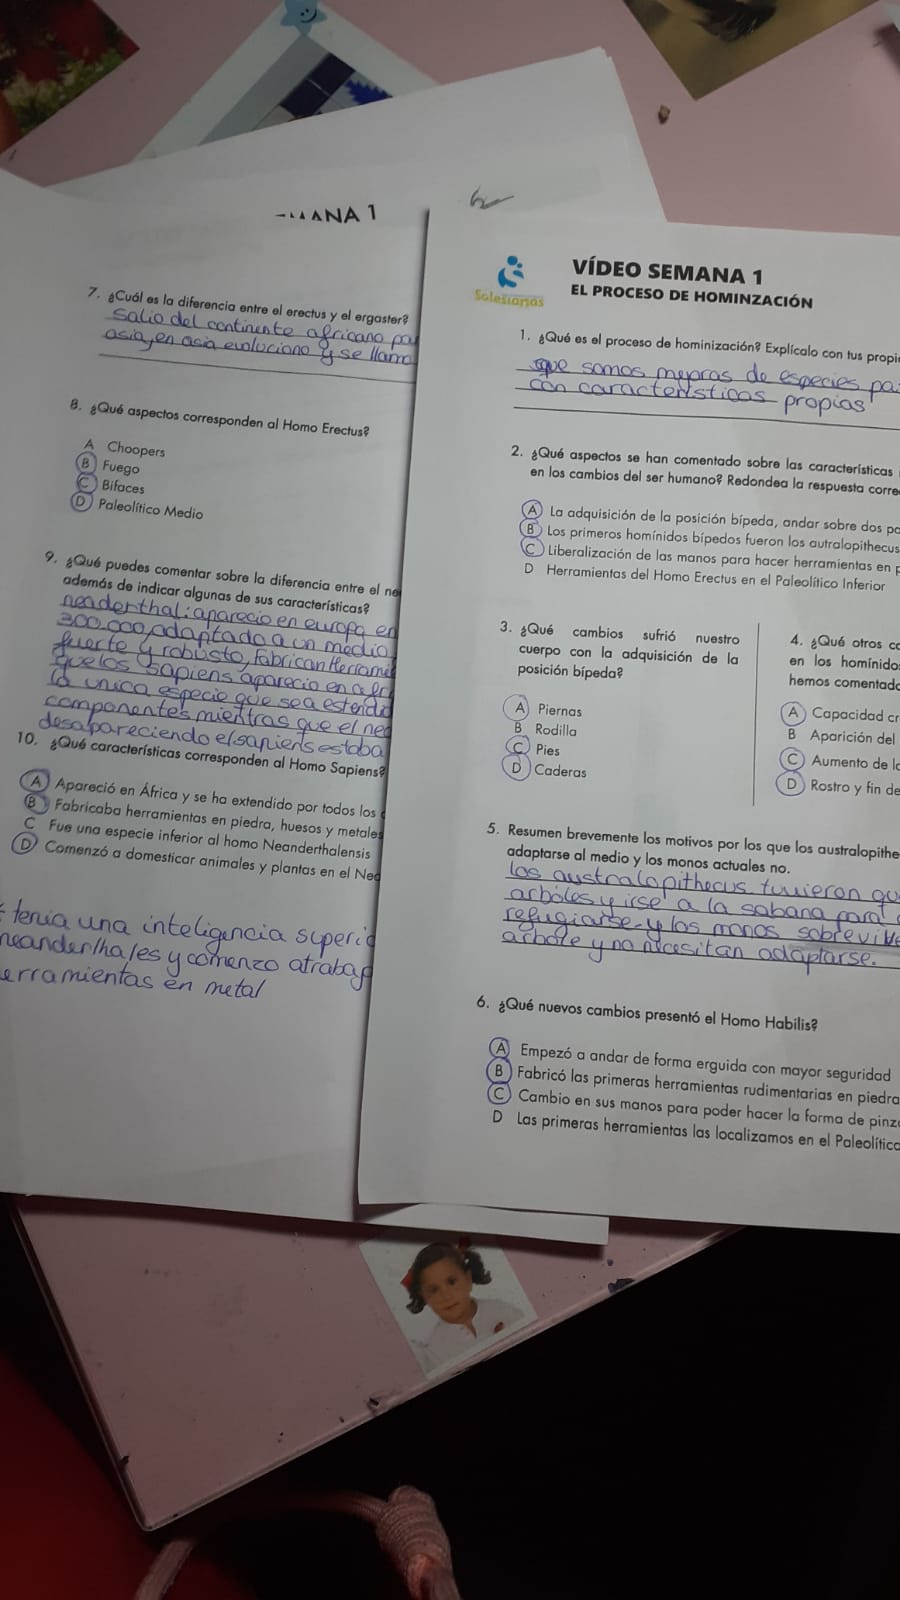 ANA 1
7. ¿Cuál es la diferencia entre el erectus y el ergaster?
Salio del continente africano
asia, en asia evoluciono y se llamo
8. ¿Qué aspectos corresponden al Homo Erectus?
A Choopers
B Fuego
C Bifaces
D Paleolítico Medio
9. ¿Qué puedes comentar sobre la diferencia entre el
además de indicar algunas de sus características?
neaderthal: aparecio en europa en
300.000, adaptado a un medio
fuerte y robusto, fabrican
que los sapiens aparecio en
la unica especie que sea
componentes mientras que el
desapareciendo el sapiens estaba
10. ¿Qué características corresponden al Homo Sapiens?
A Apareció en África y se ha extendido por todos los
B Fabricaba herramientas en piedra, huesos y metales
C Fue una especie inferior al homo Neanderthalensis
D Comenzó a domesticar animales y plantas en el
tenia una inteligencia
y comenzo
en metal
Salesianas
VÍDEO SEMANA 1
EL PROCESO DE HOMINZACIÓN
1. ¿Qué es el proceso de hominización? Explícalo con tus
que somos de especies
con características propias
2. ¿Qué aspectos se han comentado sobre las características
en los cambios del ser humano? Redondea la respuesta
A La adquisición de la posición bípeda, andar sobre dos
B Los primeros homínidos bípedos fueron los autralopithecus
C Liberalización de las manos para hacer herramientas en
D Herramientas del Homo Erectus en el Paleolítico Inferior
3. ¿Qué cambios sufrió nuestro
cuerpo con la adquisición de la
posición bípeda?
A Piernas
B Rodilla
C Pies
D Caderas
4. ¿Qué otros
en los
hemos
A Capacidad
B Aparición del
C Aumento de
D Rostro y fin de
5. Resumen brevemente los motivos por los que los
adaptarse al medio y los monos actuales no.
los australopithecus tuvieron
arbóles y irse a la sabana para
refugiarse y los monos
arbole y no necesitan adaptarse.
6. ¿Qué nuevos cambios presentó el Homo Habilis?
A Empezó a andar de forma erguida con mayor seguridad
B Fabricó las primeras herramientas rudimentarias en piedra
C Cambio en sus manos para poder hacer la forma de
D Las primeras herramientas las localizamos en el